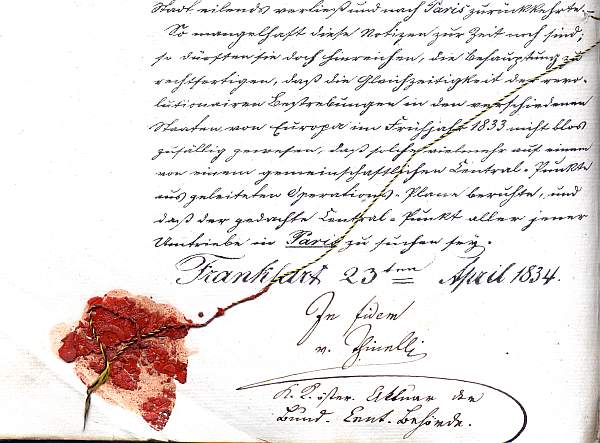 Stadt eilends verließ und nach Paris zurückkehrte. –
So mangelhaft diese Notizen zur Zeit noch sind;
so dürften sie doch hinreichen, die Behauptung zu
rechtfertigen, daß die Gleichzeitigkeit der revo-
lutionairen Bestrebungen in den verschiedenen
Staaten von Europa im Frühjahr 1833 nicht blos
zufällig gewesen, daß solche vielmehr auf einem
von einem gemeinschaftlichen Central-Punkte
aus geleiteten Operations-Plane beruhte, und
daß der gedachte Central-Punkt aller jener
Umtriebe in Paris zu suchen sey.
Frankfurt 23ten April 1834.
In fidem
v.
K. K. öster. Aktuar der
Bund. Cent. Behörde.